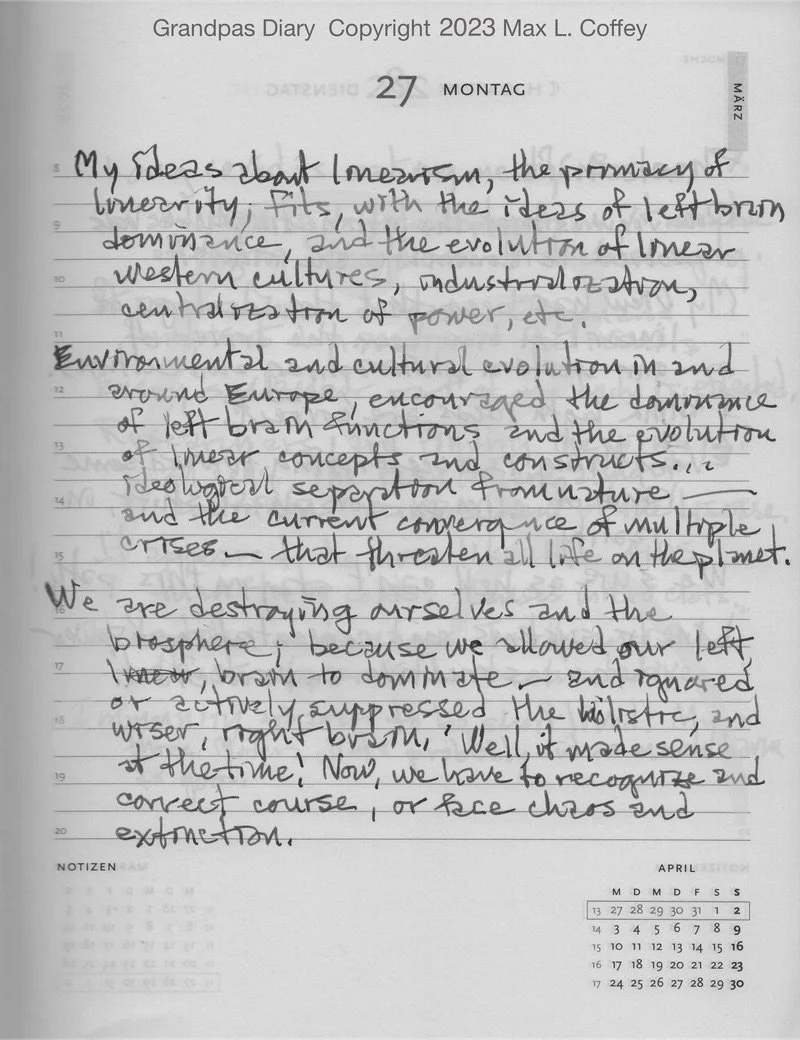 Grandpas Diary Copyright 2023 Max L. Coffey
27 MONTAG
MÄRZ
My ideas about linearism, the primacy of
linearity, fits, with the ideas of left brain
dominance, and the evolution of linear
western cultures, industrialization,
centralization of power, etc.
Environmental and cultural evolution in and
around Europe, encouraged the dominance
of left brain functions and the evolution
of linear concepts and constructs...
ideological separation from nature —
and the current convergence of multiple
crises — that threaten all life on the planet.
We are destroying ourselves and the
biosphere; because we allowed our left,
linear, brain to dominate — and ignored
or actively suppressed the holistic, and
wiser, right brain. 'Well, it made sense
at the time! Now, we have to recognize and
correct course, or face chaos and
extinction.
8
9
10
11
12
13
14
15
16
17
18
19
20
NOTIZEN
APRIL
M D M D F S S
13 27 28 29 30 31 1 2
14 3 4 5 6 7 8 9
15 10 11 12 13 14 15 16
16 17 18 19 20 21 22 23
17 24 25 26 27 28 29 30